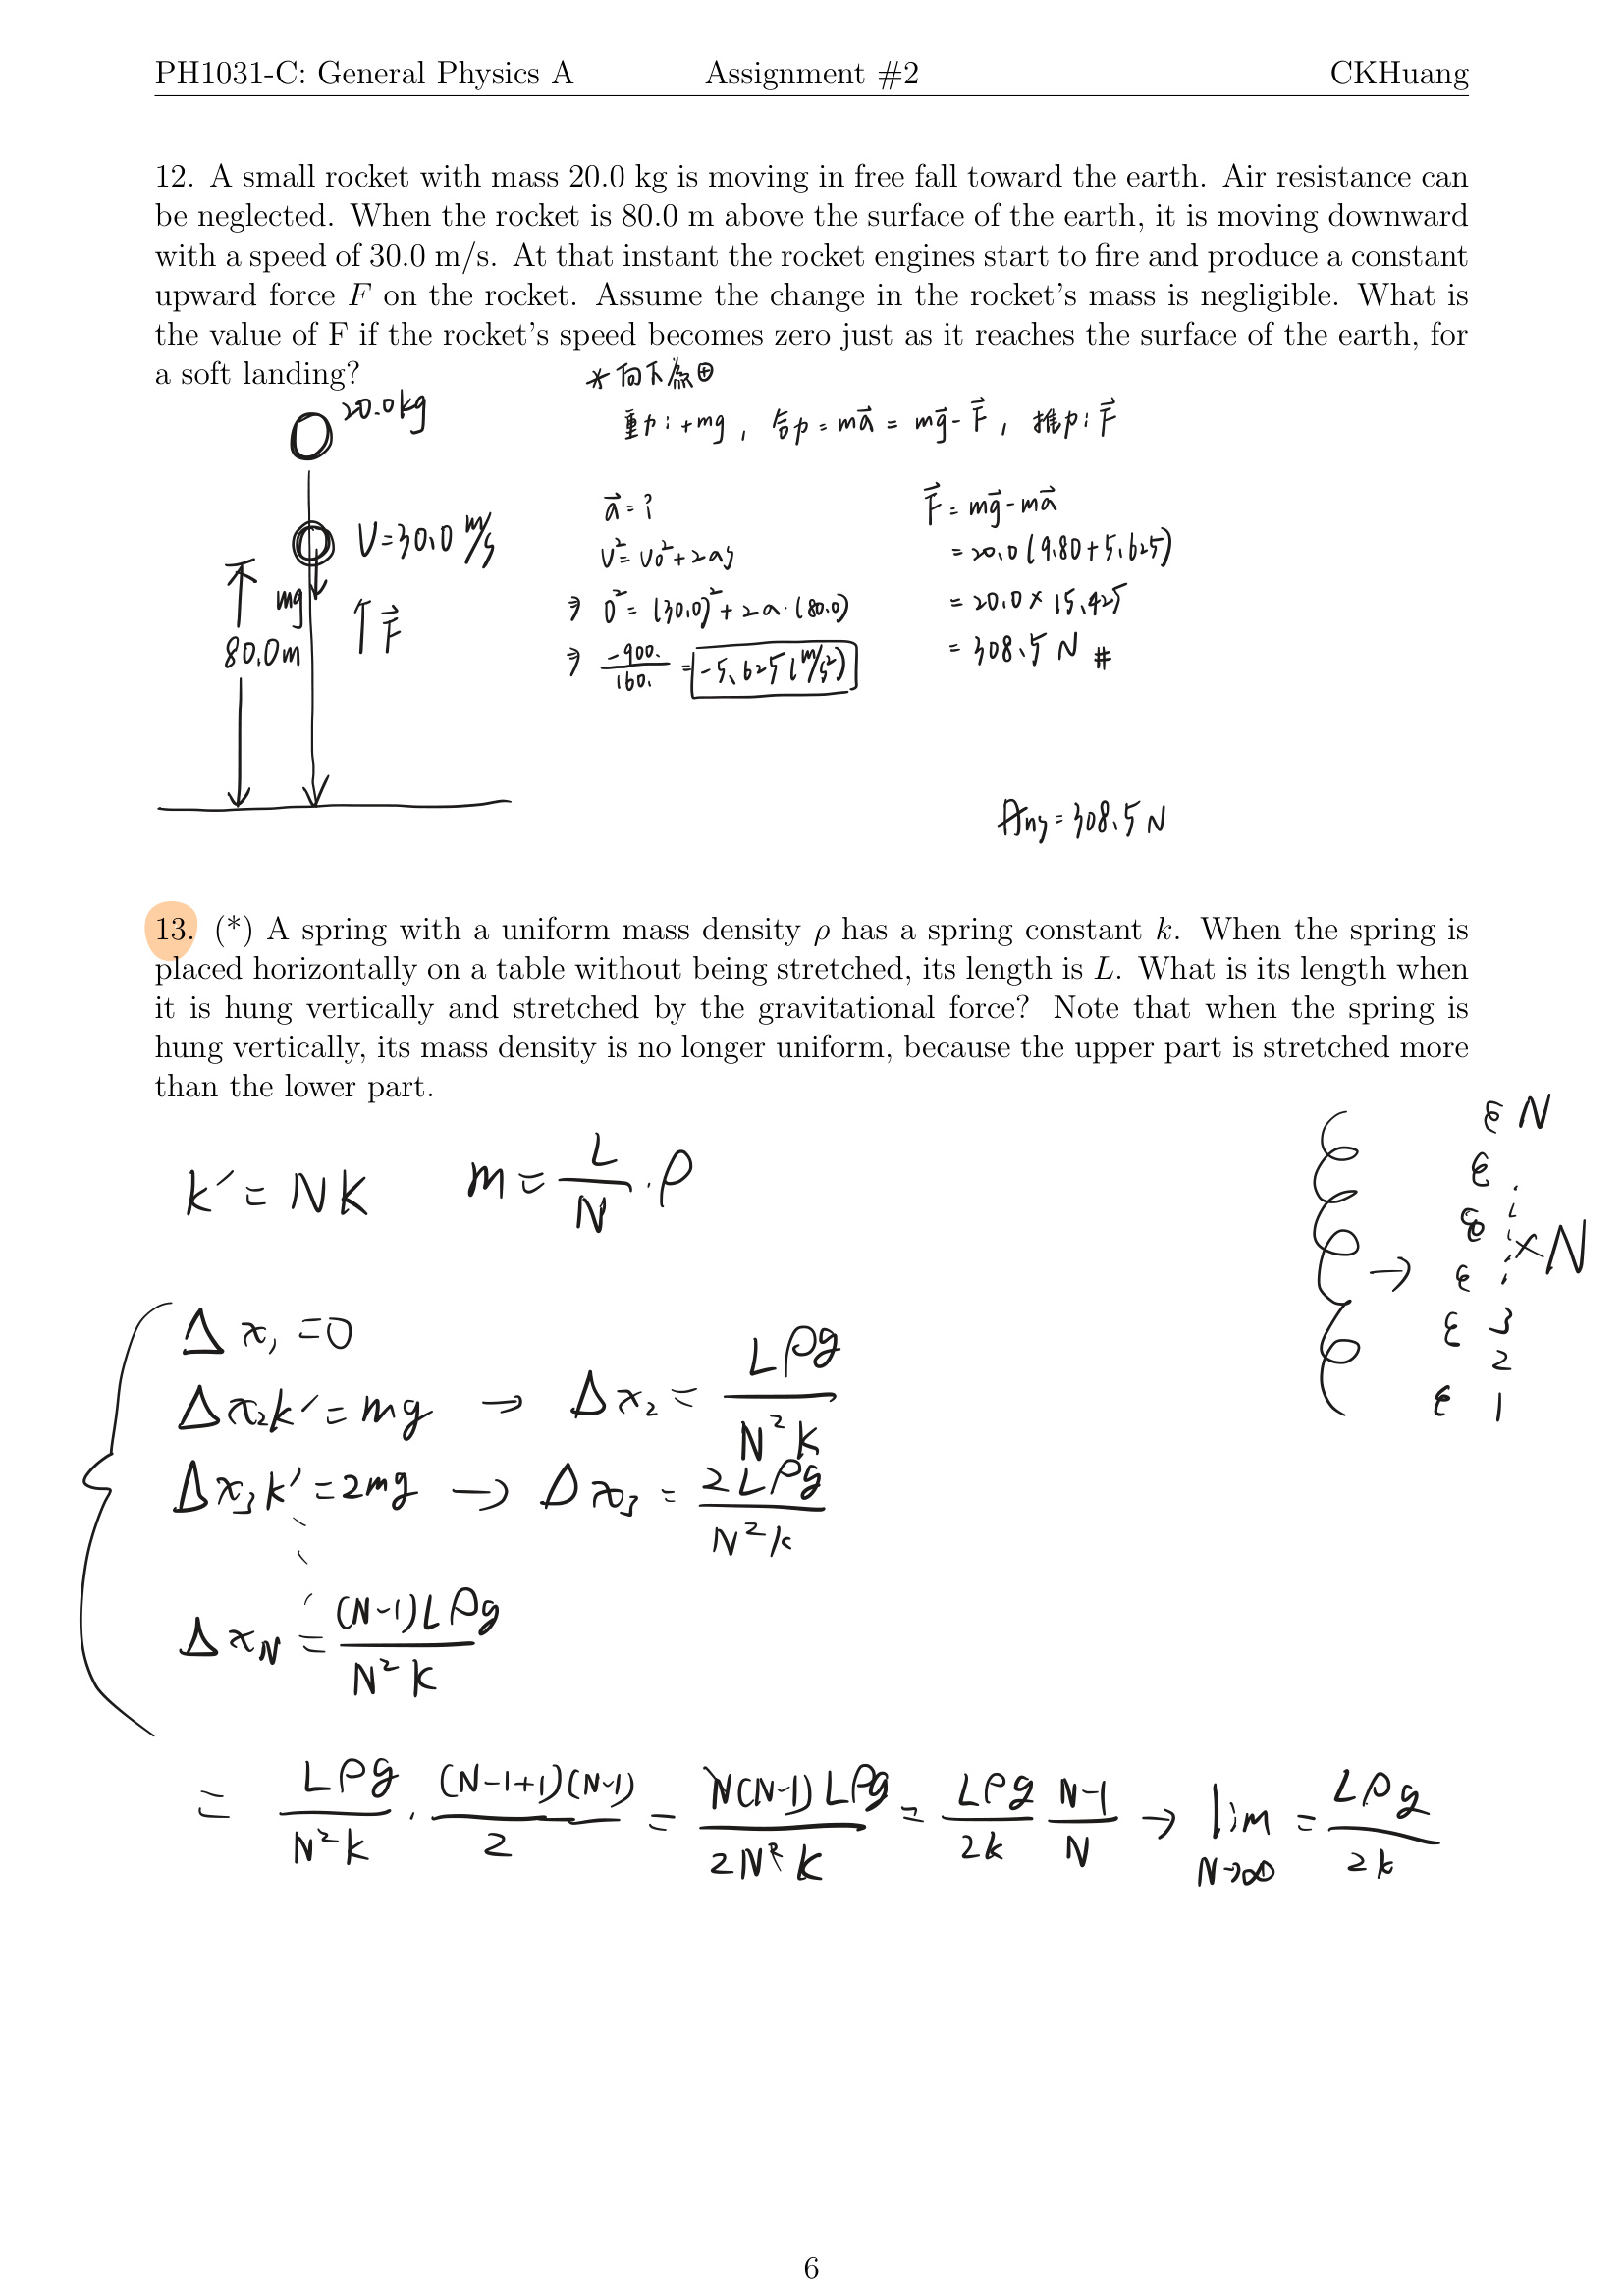 PH1031-C: General Physics A Assignment #2 CKHuang
12. A small rocket with mass 20.0 kg is moving in free fall toward the earth. Air resistance can
be neglected. When the rocket is 80.0 m above the surface of the earth, it is moving downward
with a speed of 30.0 m/s. At that instant the rocket engines start to fire and produce a constant
upward force F on the rocket. Assume the change in the rocket's mass is negligible. What is
the value of F if the rocket's speed becomes zero just as it reaches the surface of the earth, for
a soft landing?
*向下為⊕
20.0kg
重力:+mg, 合力=ma⃗ = mg⃗-F⃗, 推力:F⃗
V=30.0 m/s
mg
F⃗
80.0m
a⃗=?
V²=V₀²+2as
⇒ 0²=(30.0)²+2a·(80.0)
⇒ -900./160. = -5.625(m/s²)
F⃗=mg⃗-ma⃗
=20.0(9.80+5.625)
=20.0×15.425
=308.5 N #
Ans=308.5 N
13. (*) A spring with a uniform mass density ρ has a spring constant k. When the spring is
placed horizontally on a table without being stretched, its length is L. What is its length when
it is hung vertically and stretched by the gravitational force? Note that when the spring is
hung vertically, its mass density is no longer uniform, because the upper part is stretched more
than the lower part.
k'=NK m=L/N·ρ
N
→ ×N
3
2
1
Δx₁=0
Δx₂k'=mg → Δx₂=Lρg/N²K
Δx₃k'=2mg → Δx₃=2Lρg/N²k
Δx_N=(N-1)Lρg/N²K
= Lρg/N²k · (N-1+1)(N-1)/2 = N(N-1)Lρg/2N²K = Lρg/2k N-1/N → lim N→∞ = Lρg/2k
6